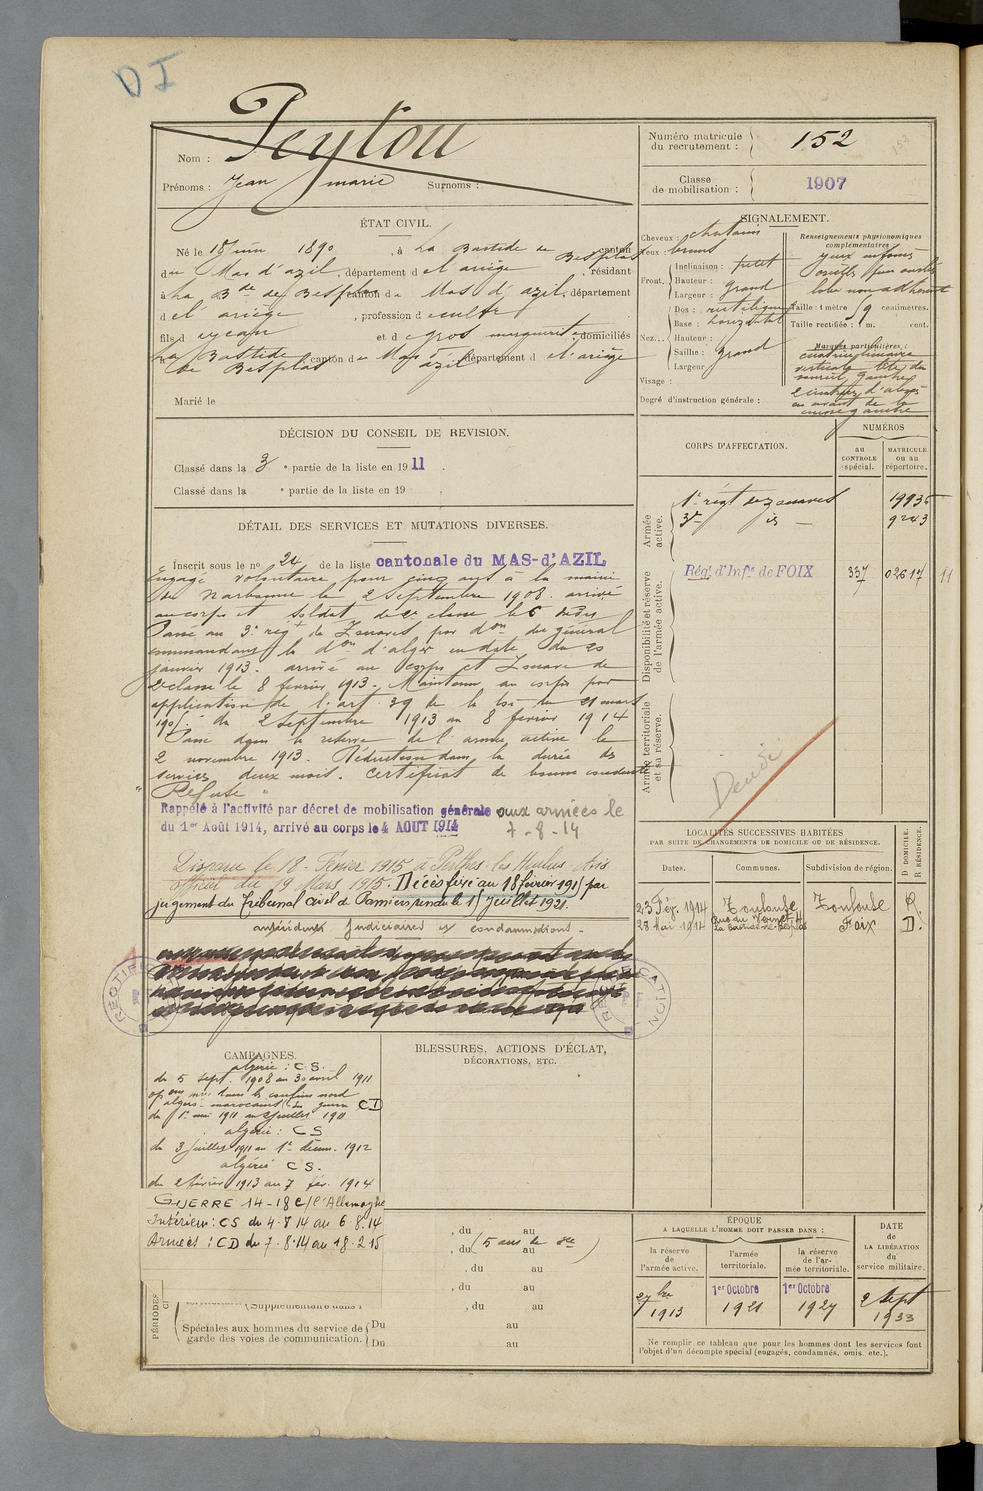 DI
Nom : Peytou
Prénoms : Jean marie Surnoms :
Numéro matricule du recrutement : 152
152
Classe de mobilisation : 1907
ÉTAT CIVIL.
Né le 18 juin 1890, à La Bastide de Besplas canton
du Mas d'azil, département d el ariège, résidant
à La B.de de Besplas canton de Mas d'azil, département
d el' ariège, profession d
fils d et de gros marguerite, domiciliés
à La Bastide de Besplas canton de Mas d'azil département d el'ariège
Marié le
SIGNALEMENT.
Cheveux : chatains
Yeux : bruns
Front. Inclinaison : petit
Hauteur : grand
Largeur :
Nez... Dos : rectiligne
Base : horizontal
Hauteur :
Saillie : grand
Largeur
Visage :
Degré d'instruction générale :
Renseignements physionomiques complémentaires :
yeux enfoncés
oreilles
lobe non adhérent
Taille : 1 mètre centimètres.
Taille rectifiée : 1 m. cent.
Marques particulières :
cicatrice linéaire
verticale tête du
sourcil gauche
2 cicatrices d'abcès
en avant de la
gauche
DÉCISION DU CONSEIL DE REVISION.
Classé dans la 3e partie de la liste en 1911.
Classé dans la e partie de la liste en 19 .
DÉTAIL DES SERVICES ET MUTATIONS DIVERSES.
Inscrit sous le no 24 de la liste cantonale du MAS-d'AZIL
Engagé volontaire pour cinq ans à la mairie
de Narbonne le 2 Septembre 1908. arrivé
au corps et soldat de 2e classe le 6 dudit
Passé au 3e régt de Zouaves par don du général
commandant la don d'alger en date du 20
janvier 1913. arrivé au corps et Zouave de
2e classe le 8 février 1913. Maintenu au corps par
application de l'art. 39 de la loi du 21 mars
1905. du 2 Septembre 1913 au 8 février 1914
Passé dans la réserve de l'armée active le
2 novembre 1913. Réduction dans la durée des
services deux mois. certificat de bonne conduite
"Refusé"
Rappelé à l'activité par décret de mobilisation générale aux armées le
du 1er Août 1914, arrivé au corps le 4 AOUT 1914 7-8-14
Disparu le 18 Février 1915 à Perthes-les-Hurlus. Avis
officiel du 19 Mars 1915. Décès fixé au 18 février 1915 par
jugement du Tribunal civil de Pamiers rendu le 15 juillet 1921.
antécédents judiciaires et condamnations -
RECTIFICATION
RECTIFICATION
CORPS D'AFFECTATION.
NUMÉROS
au CONTROLE spécial.
MATRICULE ou au répertoire.
Armée active.
1er régt de zouaves 19935
3e id - 9243
Disponibilité et réserve de l'armée active.
Régt d'Infie de FOIX 337 02617 11
Armée territoriale et sa réserve.
Décédé
LOCALITÉS SUCCESSIVES HABITÉES
PAR SUITE DE CHANGEMENTS DE DOMICILE OU DE RÉSIDENCE.
Dates. Communes. Subdivision de région. D DOMICILE. R RÉSIDENCE.
23 Fév. 1914 Toulouse Toulouse R.
28 Mai 1914 La Bastide-de-Besplas Foix D.
CAMPAGNES.
algérie : C S.
du 5 sept. 1908 au 30 avril 1911
opons mres dans les confins nord
algéro-marocains en guerre CD
du 1er mai 1911 au 2 juillet 1911
algérie : CS
du 3 juillet 1911 au 1er décem. 1912
algérie CS.
du 2 février 1913 au 7 fév. 1914
GUERRE 14-18 C/ l'Allemagne
Intérieur : CS du 4.8.14 au 6.8.14
Armées : CD du 7.8.14 au 18.2.15
BLESSURES, ACTIONS D'ÉCLAT,
DÉCORATIONS, ETC.
PÉRIODES
, du au
, du (5 ans de ) au
, du au
, du au
(Supplémentaire dans l , du au
Spéciales aux hommes du service de garde des voies de communication. Du au
Du au
ÉPOQUE
A LAQUELLE L'HOMME DOIT PASSER DANS :
la réserve de l'armée active.
l'armée territoriale.
la réserve de l'armée territoriale.
DATE de LA LIBÉRATION du service militaire.
2 9bre 1913
1er Octobre 1921
1er Octobre 1927
2 Sept 1933
Ne remplir ce tableau que pour les hommes dont les services font
l'objet d'un décompte spécial (engagés, condamnés, omis, etc.).